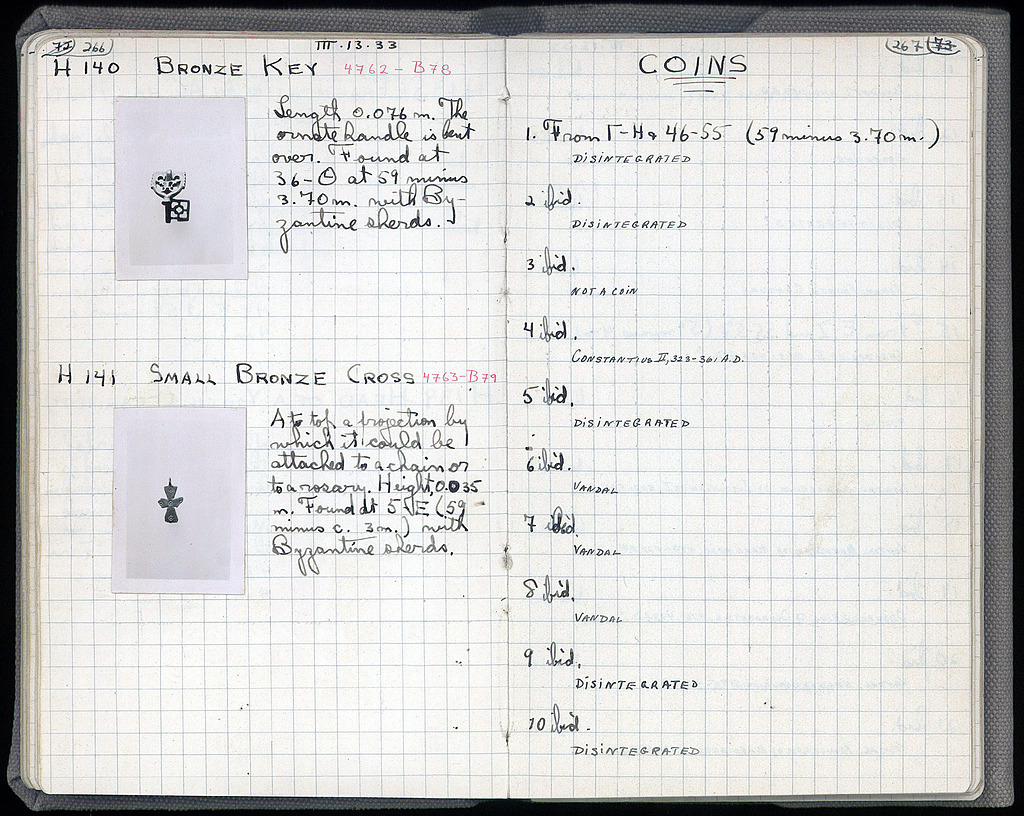 72 266
III · 13 · 33
H 140 BRONZE KEY 4762 - B78
Length 0.076 m. The
ornate handle is bent
over. Found at
36-Θ at 59 minus
3.70 m. with By-
zantine sherds.
H 141 SMALL BRONZE CROSS 4763-B79
At top a projection by
which it could be
attached to a chain or
to a rosary. Height, 0.035
m. Found at 5 E (59
minus c. 3 m.) with
Byzantine sherds.
267 73
COINS
1. From Γ-H & 46-55 (59 minus 3.70 m.)
DISINTEGRATED
2 ibid.
DISINTEGRATED
3 ibid.
NOT A COIN
4 ibid.
CONSTANTIUS II, 323-361 A.D.
5 ibid.
DISINTEGRATED
6 ibid.
VANDAL
7 ibid.
VANDAL
8 ibid.
VANDAL
9 ibid.
DISINTEGRATED
10 ibid.
DISINTEGRATED